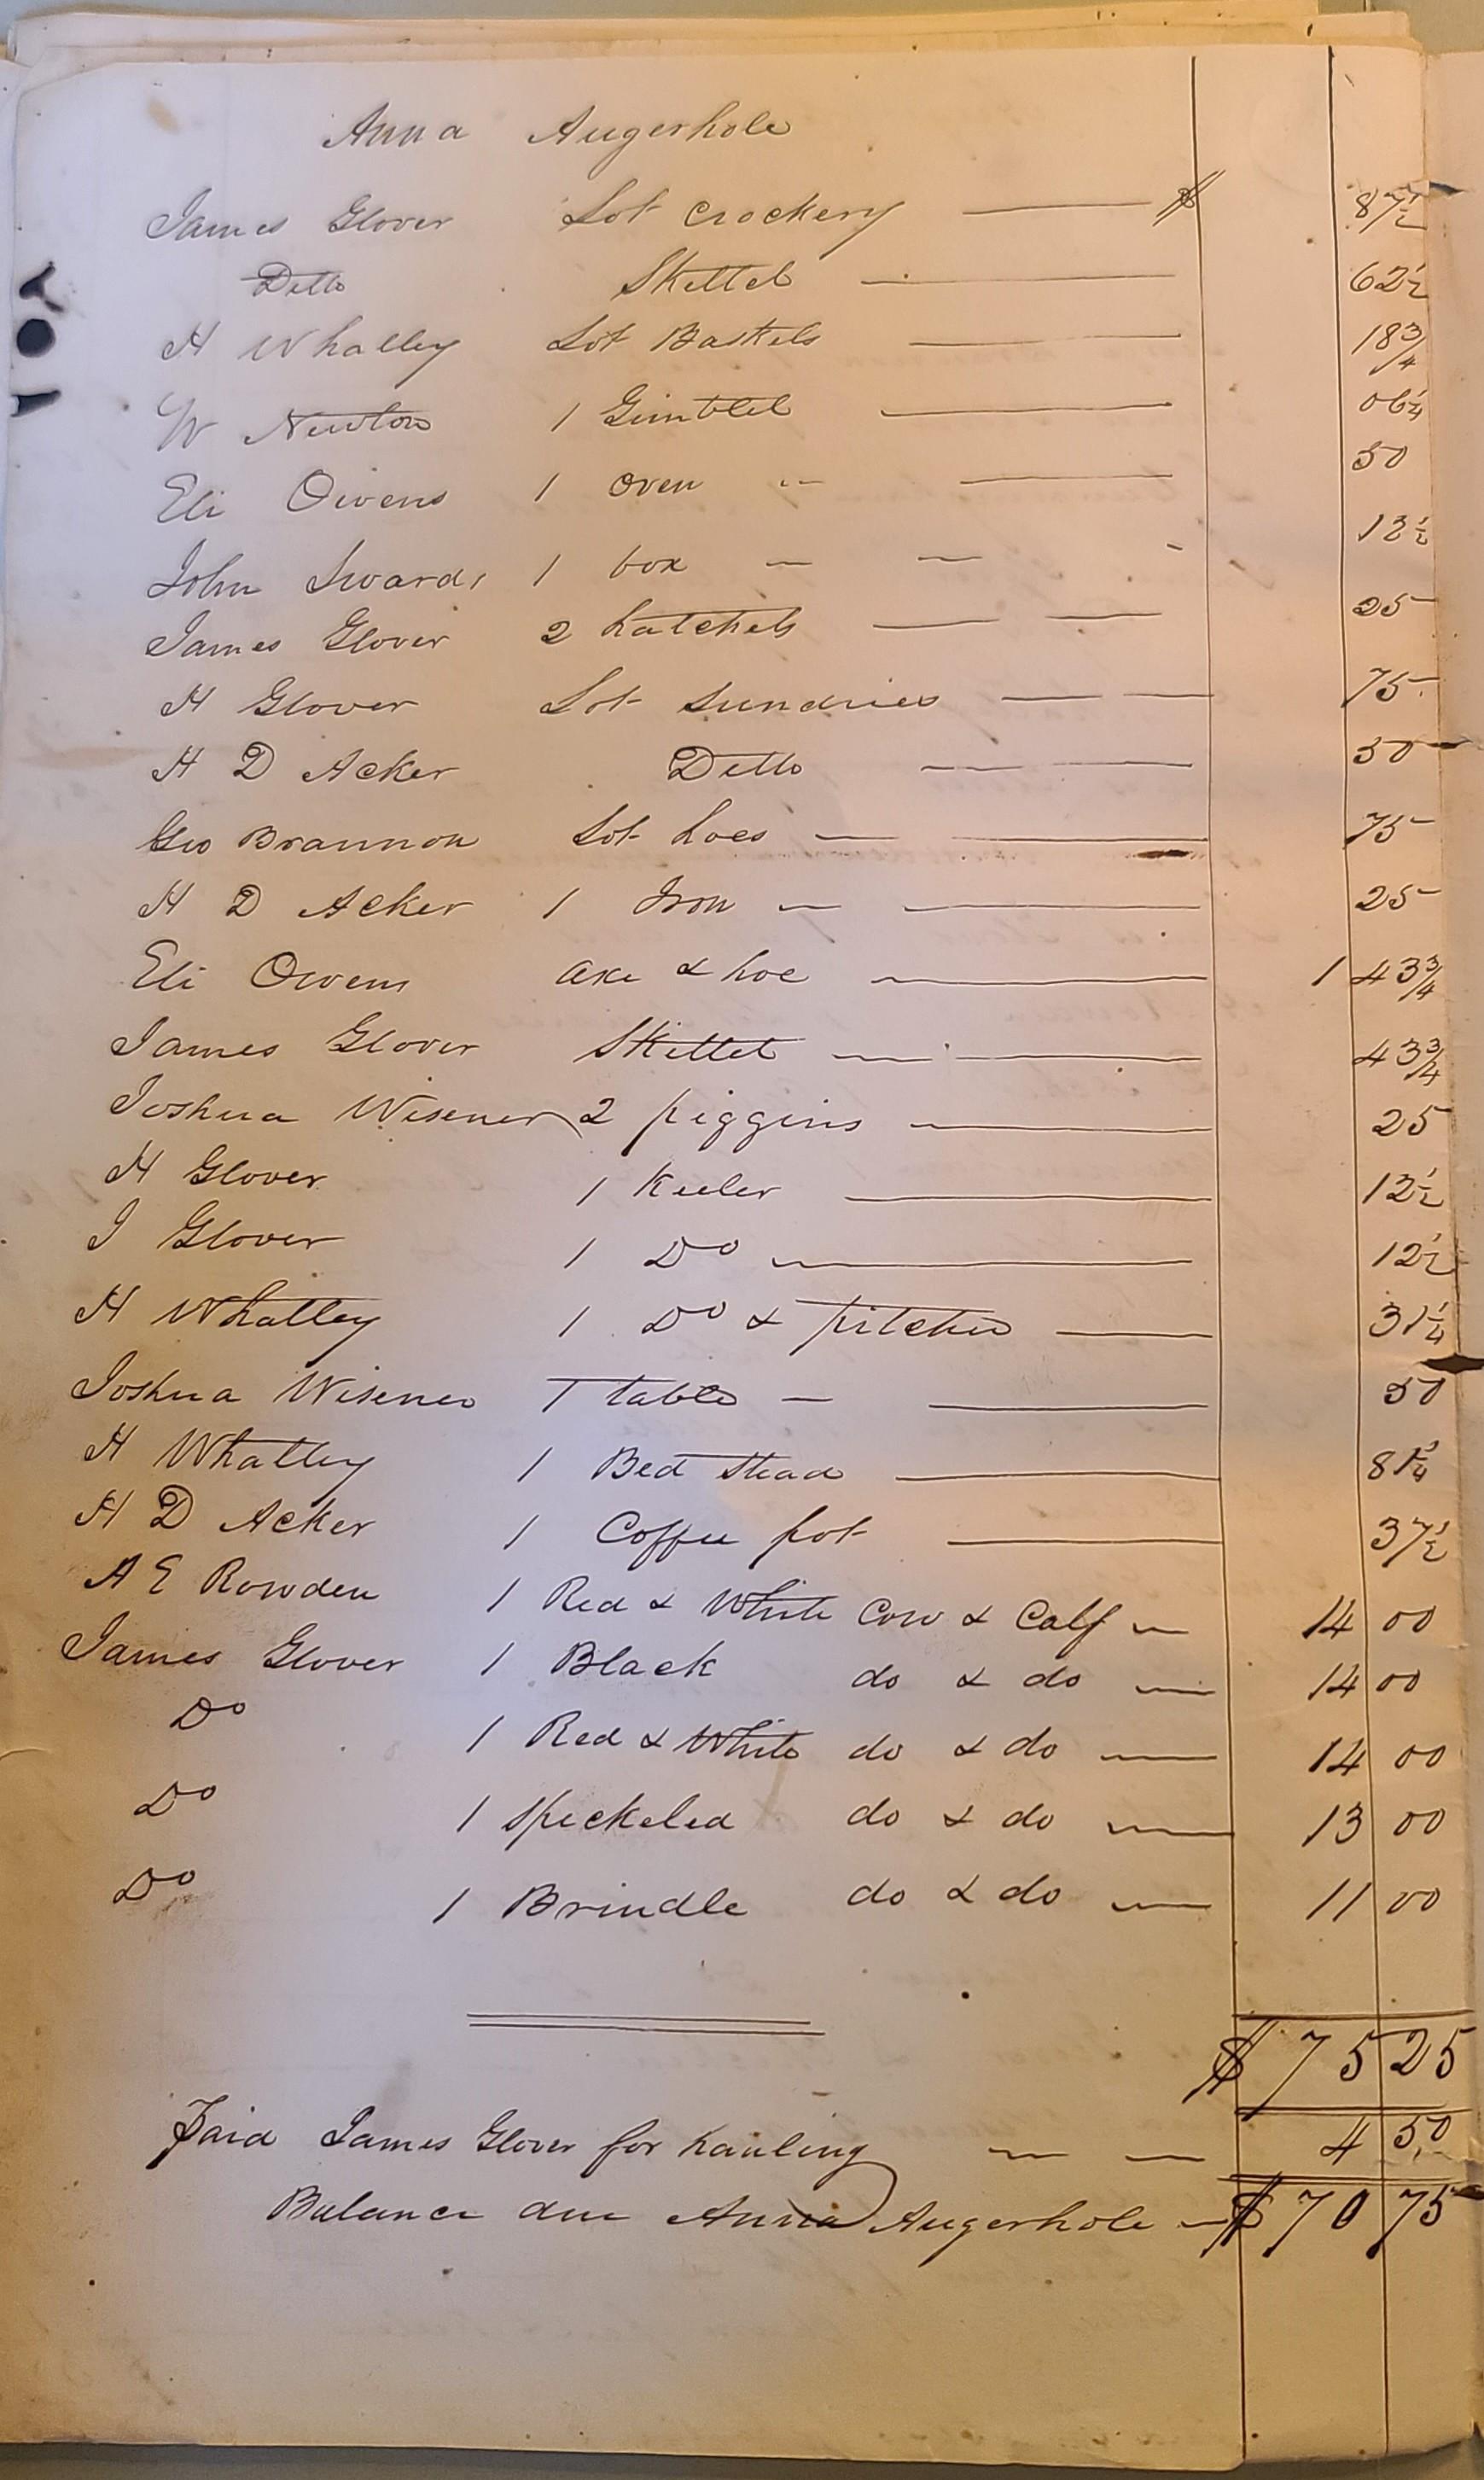 Anna Augerhole
James Glover Lot Crockery $ 87½
Ditto Skillet 62½
H Whalley Lot Baskets 18¾
W Newton 1 Gimblet 06¼
Eli Owens 1 oven 50
John Swards 1 box 12½
James Glover 2 hatchels 25
H Glover Lot Sundries 75
H D Acker Ditto 50
Geo Brannon Lot hoes 75
H D Acker 1 Iron 25
Eli Owens axe & hoe 1 43¾
James Glover Skillet 43¾
Joshua Wisener 2 piggins 25
H Glover 1 Keeler 12½
J Glover 1 Do 12½
H Whatley 1 Do & pitcher 31¼
Joshua Wisener 1 table 50
H Whatley 1 Bed Stead 81¼
H D Acker 1 Coffee pot 37½
A E Rowden 1 Red & White Cow & Calf 14 00
James Glover 1 Black do & do 14 00
Do 1 Red & White do & do 14 00
Do 1 Speckeled do & do 13 00
Do 1 Brindle do & do 11 00
$ 75 25
Paid James Glover for hauling 4 50
Balance due Anna Augerhole $ 70 75